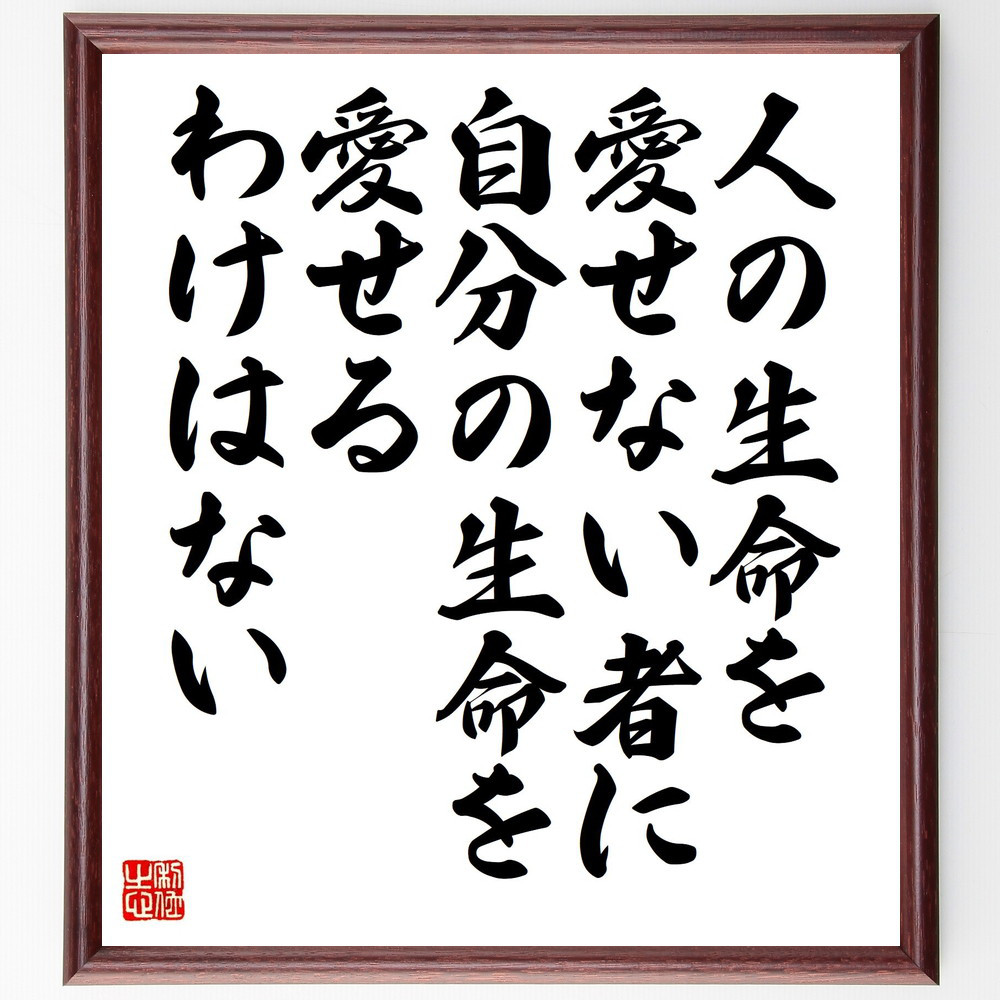 人の生命を
愛せない者に
自分の生命を
愛せる
わけはない